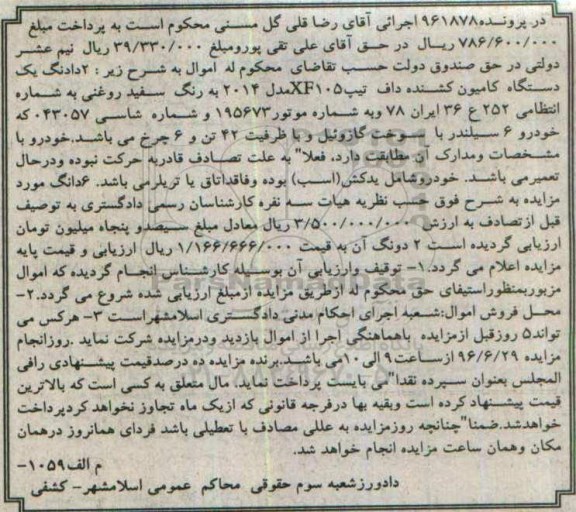 در پرونده۹۶۱۸۷۸ اجرائی آقای رضا قلی گل مسنی محکوم است به پرداخت مبلغ
۷۸۶/۶۰۰/۰۰۰ ریال در حق آقای علی تقی پورومبلغ ۳۹/۳۳۰/۰۰۰ ریال نیم عشر
دولتی در حق صندوق دولت حسب تقاضای محکوم له اموال به شرح زیر : ۲دانگ یک
دستگاه کامیون کشنده داف تیپXF۱۰۵مدل ۲۰۱۴ به رنگ سفید روغنی به شماره
انتظامی ۲۵۲ ع ۳۶ ایران ۷۸ وبه شماره موتور۱۹۵۶۷۳ و شماره شاسی ۰۴۳۰۵۷ که
خودرو ۶ سیلندر با سوخت گازوئیل و با ظرفیت ۴۲ تن و ۶ چرخ می باشد.خودرو با
مشخصات ومدارک آن مطابقت دارد، فعلا" به علت تصادف قادربه حرکت نبوده ودرحال
تعمیرمی باشد. خودروشامل یدکش(اسب) بوده وفاقداتاق یا تریلرمی باشد. ۶دانگ مورد
مزایده به شرح فوق حسب نظریه هیات سه نفره کارشناسان رسمی دادگستری به توصیف
قبل ازتصادف به ارزش ۳/۵۰۰/۰۰۰/۰۰۰ ریال معادل مبلغ سیصدو پنجاه میلیون تومان
ارزیابی گردیده است ۲ دونگ آن به قیمت ۱/۱۶۶/۶۶۶/۰۰۰ ریال ارزیابی و قیمت پایه
مزایده اعلام می گردد.۱- توقیف وارزیابی آن بوسیله کارشناس انجام گردیده که اموال
مزبوربمنظوراستیفای حق محکوم له ازطریق مزایده ازمبلغ ارزیابی شده شروع می گردد.۲-
محل فروش اموال:شعبه اجرای احکام مدنی دادگستری اسلامشهراست ۳- هرکس می
تواند۵ روزقبل ازمزایده باهماهنگی اجرا از اموال بازدید ودرمزایده شرکت نماید .روزانجام
مزایده ۹۶/۶/۲۹ ازساعت۹ الی ۱۰می باشد.برنده مزایده ده درصدقیمت پیشنهادی رافی
المجلس بعنوان سپرده نقدا"می بایست پرداخت نماید. مال متعلق به کسی است که بالاترین
قیمت پیشنهاد کرده است وبقیه بها درفرجه قانونی که ازیک ماه تجاوز نخواهد کردپرداخت
خواهدشد.ضمنا"چنانچه روزمزایده به عللی مصادف با تعطیلی باشد فردای همانروز درهمان
مکان وهمان ساعت مزایده انجام خواهد شد.
م الف۱۰۵۹-
دادورزشعبه سوم حقوقی محاکم عمومی اسلامشهر- کشفی